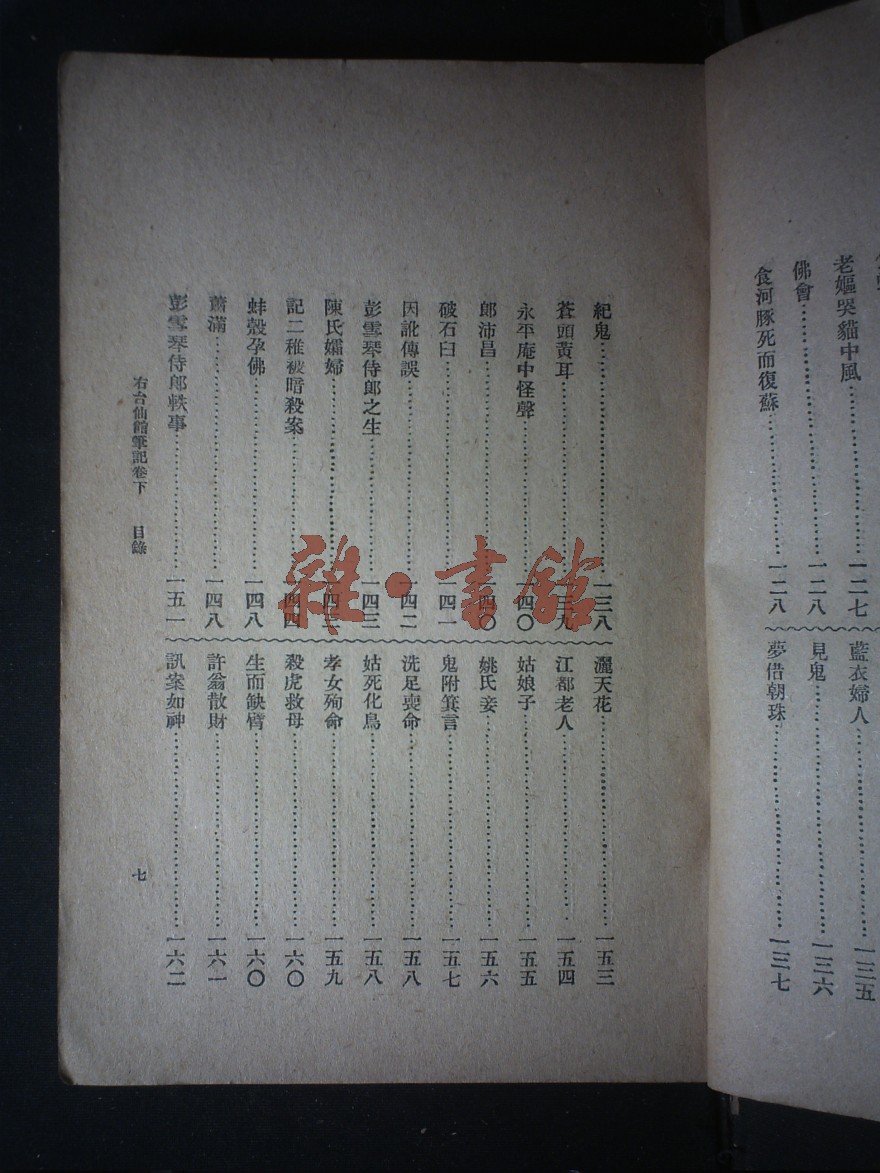 老嫗哭貓中風⋯⋯一二七
佛會⋯⋯一二八
食河豚死而復蘇⋯⋯一二八
藍衣婦人⋯⋯一三五
見鬼⋯⋯一三六
夢借朝珠⋯⋯一三七
紀鬼⋯⋯一三八
蒼頭黃耳⋯⋯一三九
永平庵中怪聲⋯⋯一四〇
郎沛昌⋯⋯一四〇
破石臼⋯⋯一四一
因訛傳誤⋯⋯一四二
彭雪琴侍郎之生⋯⋯一四三
陳氏孀婦⋯⋯一四三
記二稚被暗殺案⋯⋯一四四
蚌殼孕佛⋯⋯一四八
蕭滿⋯⋯一四八
彭雪琴侍郎軼事⋯⋯一五一
灑天花⋯⋯一五三
江都老人⋯⋯一五四
姑娘子⋯⋯一五五
姚氏妾⋯⋯一五六
鬼附箕言⋯⋯一五七
洗足喪命⋯⋯一五八
姑死化鳥⋯⋯一五八
孝女殉命⋯⋯一五九
殺虎救母⋯⋯一六〇
生而缺臂⋯⋯一六〇
許翁散財⋯⋯一六一
訊案如神⋯⋯一六二
右台仙館筆記卷下 目錄 七
雜·書館